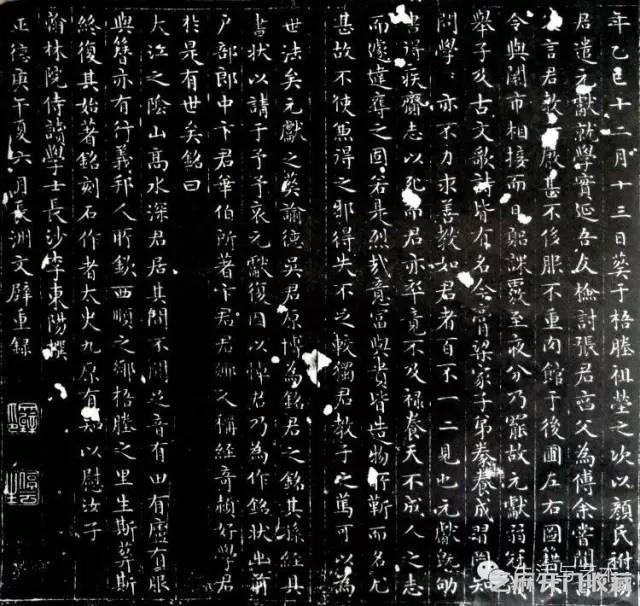 年乙巳十二月十三日葬于梧塍祖塋之次以顏氏祔初
君遣元獻就學實延名友檢討張君亨父為傅余嘗聞
言君教甚不後服不重肉館于後圃左右圖籍
令與闤市相接而日躬課覈至夜分乃罷故元獻弱冠
舉子及古文歌詩皆有名今膏粱家子弟豢養成習罔知
問學亦不力求善教如君者百不一二見也元獻旣
得疾齎志以死而君亦卒竟不及祿養天不成人之志
而遽達尋之固若是烈哉竟富與貴皆造物所靳而名尤
甚故不使兼得之邪得失不之較獨君教子之篤可以為
世法矣元獻之葬諭德吳君原博為銘君之銘其孫經具
書狀以請予予哀元獻復因以悼君乃為作銘狀出前
戶部郎中卞君華伯所著卞君君鄉人稱經奇穎好學君
於是有世矣銘曰
大江之陰山高水深君居其間不闕足音有田有廬有服
與簪亦有行義邦人所欽西順之鄉梧塍之里生斯葬斯
終復其始著銘刻石作者太史九原有知以慰汝子
翰林院侍講學士長沙李東陽撰
正德庚午夏六月長洲文壁重錄